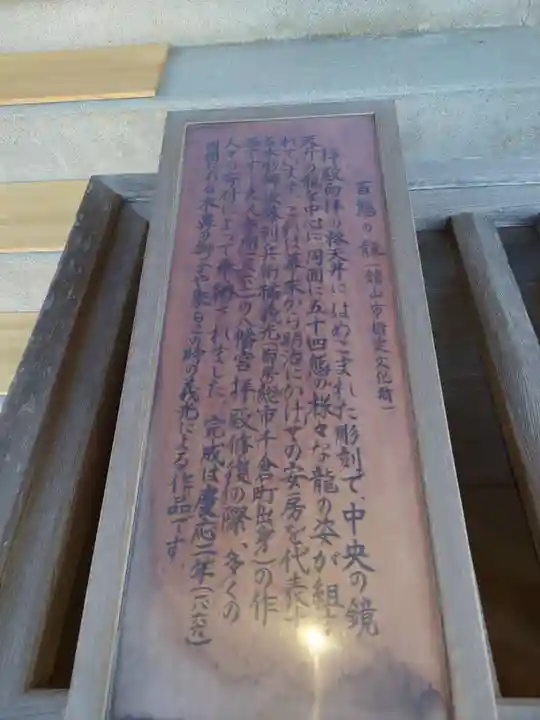 百態の龍（館山市指定文化財）
拝殿向拝の格天井にはめこまれた彫刻で、中央の鏡
天井の龍を中心に周囲に五十四態の様々な龍の姿が組
れています。これは幕末から明治にかけての安房を代表す
る木彫師後藤利兵衛橘義光（南房総市千倉町出身）の作
品です。
八幡宮拝殿修復の際、多くの
人々の寄付によって奉納されました。完成は慶応二年（一八六六）
周囲にある水
この時の義光による作品です。